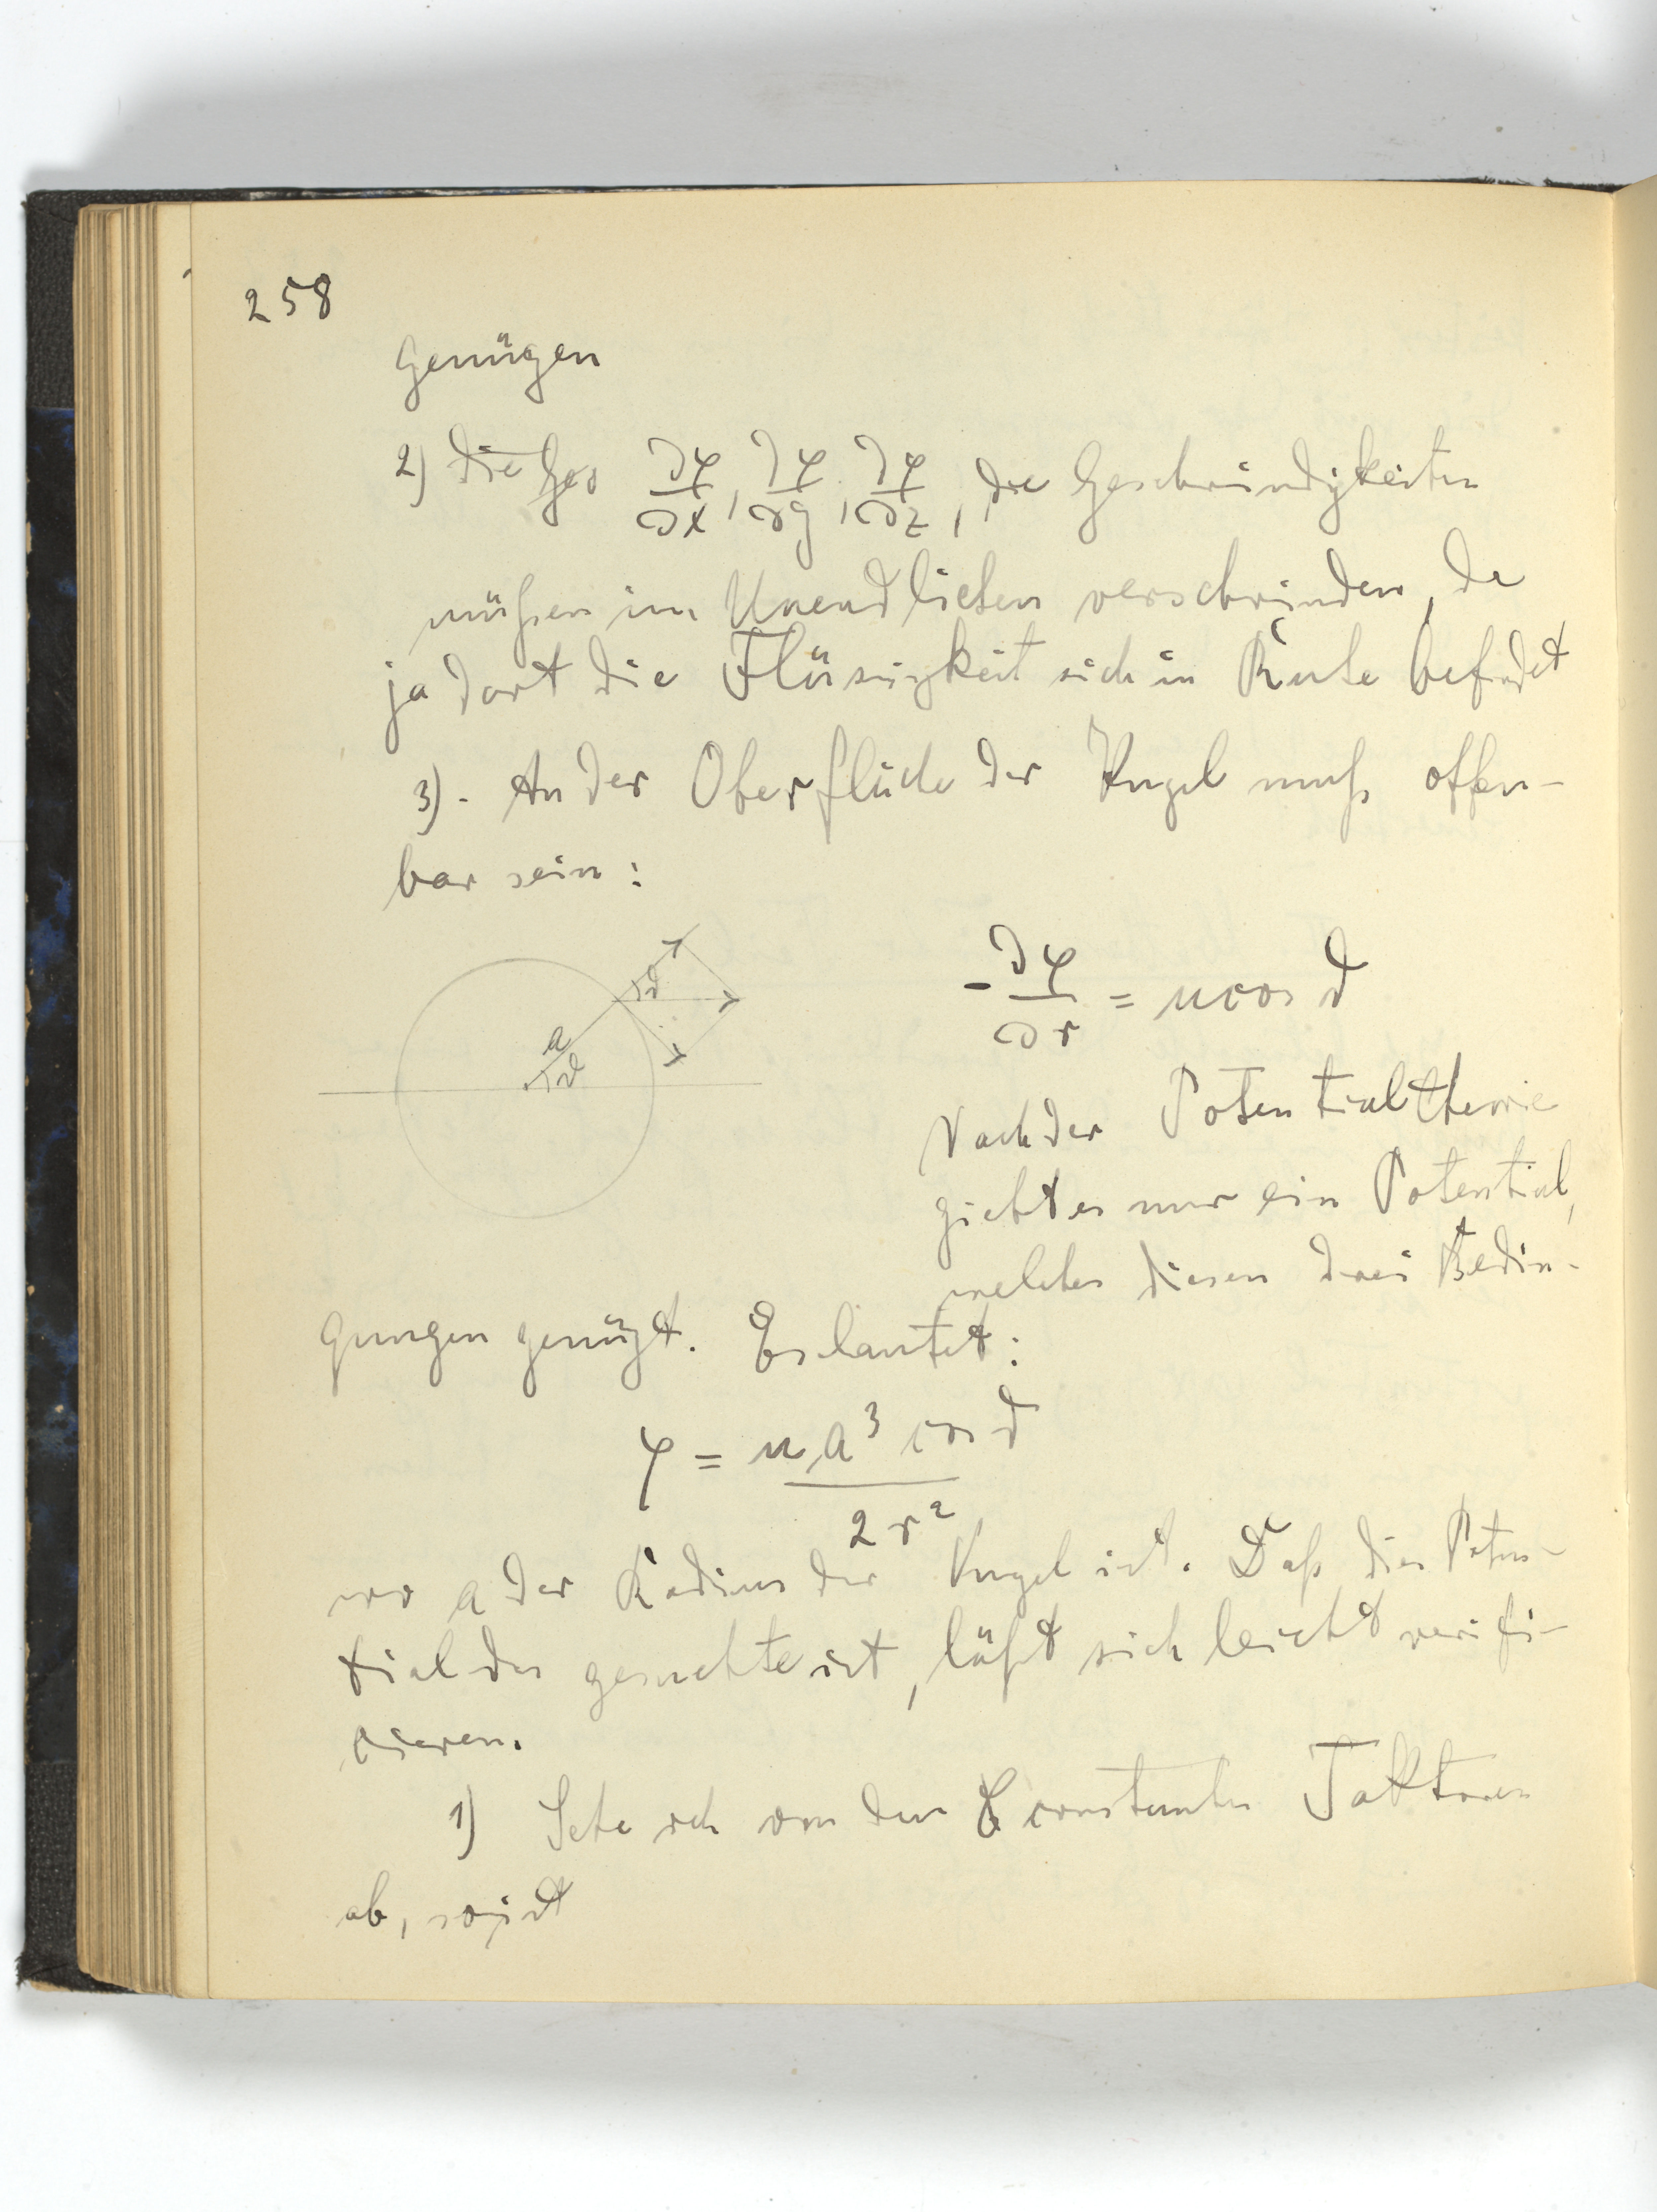 258
genügen
2) die Ges ∂φ/∂x, ∂φ/∂y, ∂φ/∂z, die Geschwindigkeiten
müßen im Unendlichen verschwinden, da
ja dort die Flüssigkeit sich in Ruhe befindet
3). An der Oberfläche der Kugel muß offen-
bar sein:
ϑ
a
ϑ
-∂φ/∂r = u cos ϑ
Nach der Potentialtheorie
giebt es nur ein Potential,
welches diesen drei Bedin-
gungen genügt. Es lautet:
φ = u a³ cos ϑ / 2 r²
wo a der Radius der Kugel ist. Daß dies Poten-
tial das gesuchte ist, läßt sich leicht verifi-
cieren.
1) Sehe ich von den constanten Faktoren
ab, so ist